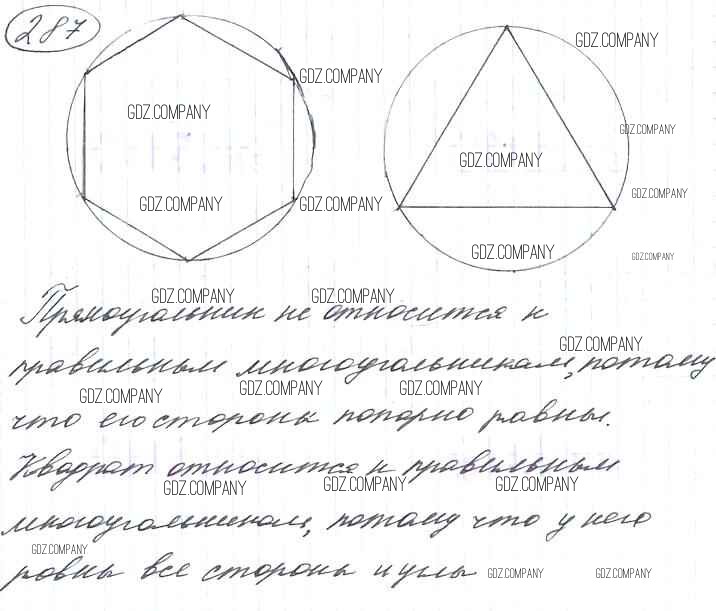 287
GDZ.COMPANY
GDZ.COMPANY
GDZ.COMPANY
GDZ.COMPANY
GDZ.COMPANY
GDZ.COMPANY
GDZ.COMPANY
GDZ.COMPANY
GDZ.COMPANY
GDZ.COMPANY
GDZ.COMPANY
GDZ.COMPANY GDZ.COMPANY
Прямоугольник не относится к
GDZ.COMPANY
правильным многоугольникам, потому
GDZ.COMPANY GDZ.COMPANY GDZ.COMPANY
что его стороны попарно равны.
Квадрат относится к правильным
GDZ.COMPANY GDZ.COMPANY GDZ.COMPANY
многоугольникам, потому что у него
GDZ.COMPANY
равны все стороны и углы
GDZ.COMPANY GDZ.COMPANY